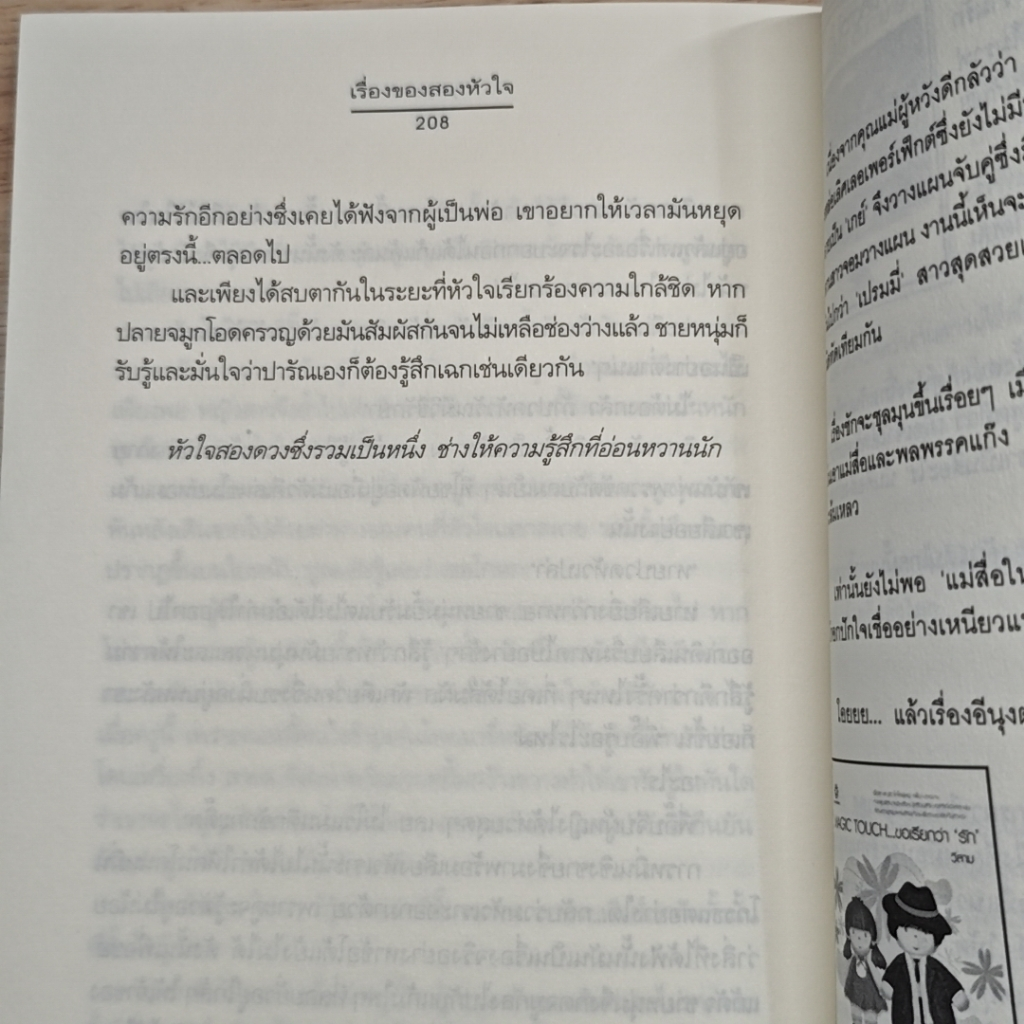 เรื่องของสองหัวใจ
208
ความรักอีกอย่างซึ่งเคยได้ฟังจากผู้เป็นพ่อ เขาอยากให้เวลามันหยุด
อยู่ตรงนี้...ตลอดไป
และเพียงได้สบตากันในระยะที่หัวใจเรียกร้องความใกล้ชิด หาก
ปลายจมูกโอดครวญด้วยมันสัมผัสกันจนไม่เหลือช่องว่างแล้ว ชายหนุ่มก็
รับรู้และมั่นใจว่าปารัณเองก็ต้องรู้สึกเฉกเช่นเดียวกัน
หัวใจสองดวงซึ่งรวมเป็นหนึ่ง ช่างให้ความรู้สึกที่อ่อนหวานนัก
จากคุณแม่ผู้หวังดีกลัวว่า
เลิศเลอเพอร์เฟ็กต์ซึ่งยังไม่มี
เป็น 'เกย์' จึงวางแผนจับคู่ซึ่ง
สาวจอมวางแผน งานนี้เห็นจะ
กว่า 'เปรมมี่' สาวสุดสวย
เทียมกัน
เรื่องชักจะชุลมุนขึ้นเรื่อยๆ
แม่สื่อและพลพรรคแก๊ง
เหลว
เท่านั้นยังไม่พอ 'แม่สื่อ
ปักใจเชื่ออย่างเหนียว
โอยยย... แล้วเรื่องอีนุง
TOUCH...ขอเรียกว่า "รัก"
วิสาม